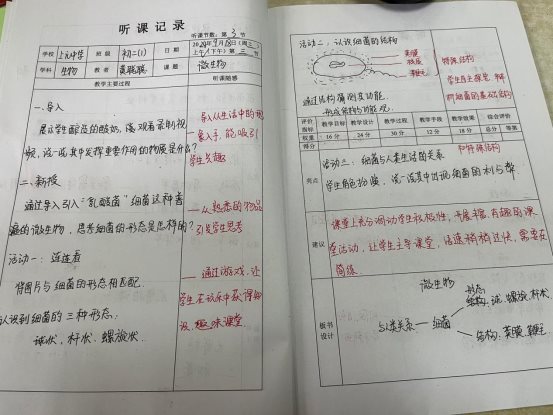 听课记录
听课节数:第 3 节
学校 上元中学 班级 初二(1) 日期 2024年9月18日(周三) 上午(下午)第三节
学科 生物 教者 课题 微生物
教学主要过程 听课随感
一、导入
展示学生酿造的酸奶,请观看录制视
频,说一说其中发挥重要作用的物质是什么?
— 导入从生活中的现
象入手,能吸引
学生兴趣
二、新授
通过导入引入“乳酸菌”细菌这种普
遍的微生物,思考细菌的形态是怎样的?
— 从熟悉的物品
引发学生思考
活动一:连连看
将图片与细菌的形态相匹配.
— 通过游戏,让
学生在玩乐中获得知
识,趣味课堂
认识到细菌的三种形态:
球状,杆状,螺旋状.
活动二:认识细菌的结构
荚膜
鞭毛
特殊结构
学生自主探究,辨
析细菌的基础结构
通过结构猜测其功能.
形成结构与功能观.
和特殊结构
评价指标 教学目标 教学设计 教学过程 教学手段 教学效果 综合评价
权重 16分 24分 30分 12分 18分 总分 等第
得分
亮点
活动三:细菌与人类生活的关系
学生角色扮演,说一说其中出现细菌的利与弊
建议
课堂上充分调动学生积极性,开展丰富,有趣的课
堂活动,让学生主导课堂,语速稍稍过快,需要在
简练
板书设计
微生物
形态:球,螺旋,杆状
与人类关系 — 细菌
结构:荚膜,鞭毛